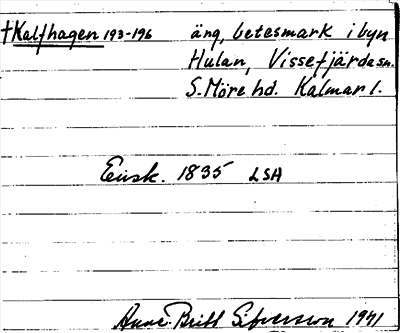 †Kalfhagen 193-196 äng, betesmark i byn
Hulan, Vissefjärda sn.
S. Möre hd. Kalmar l.
Ensk. 1835 LSA
Anne-Britt Sifversson 1941